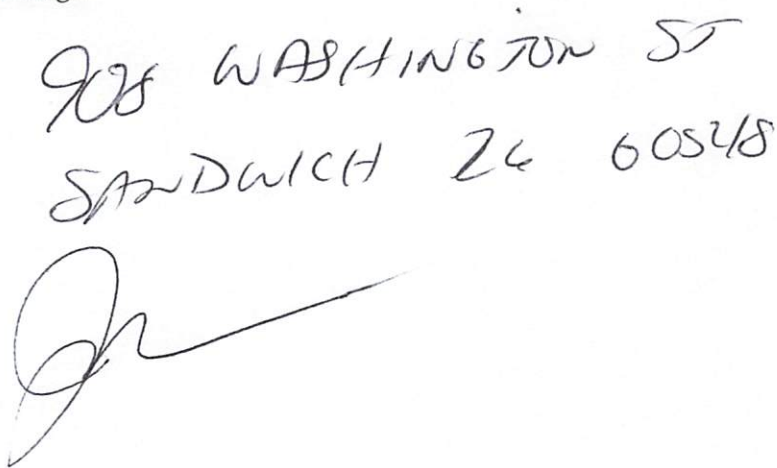 908 WASHINGTON ST
SANDWICH IL 60548